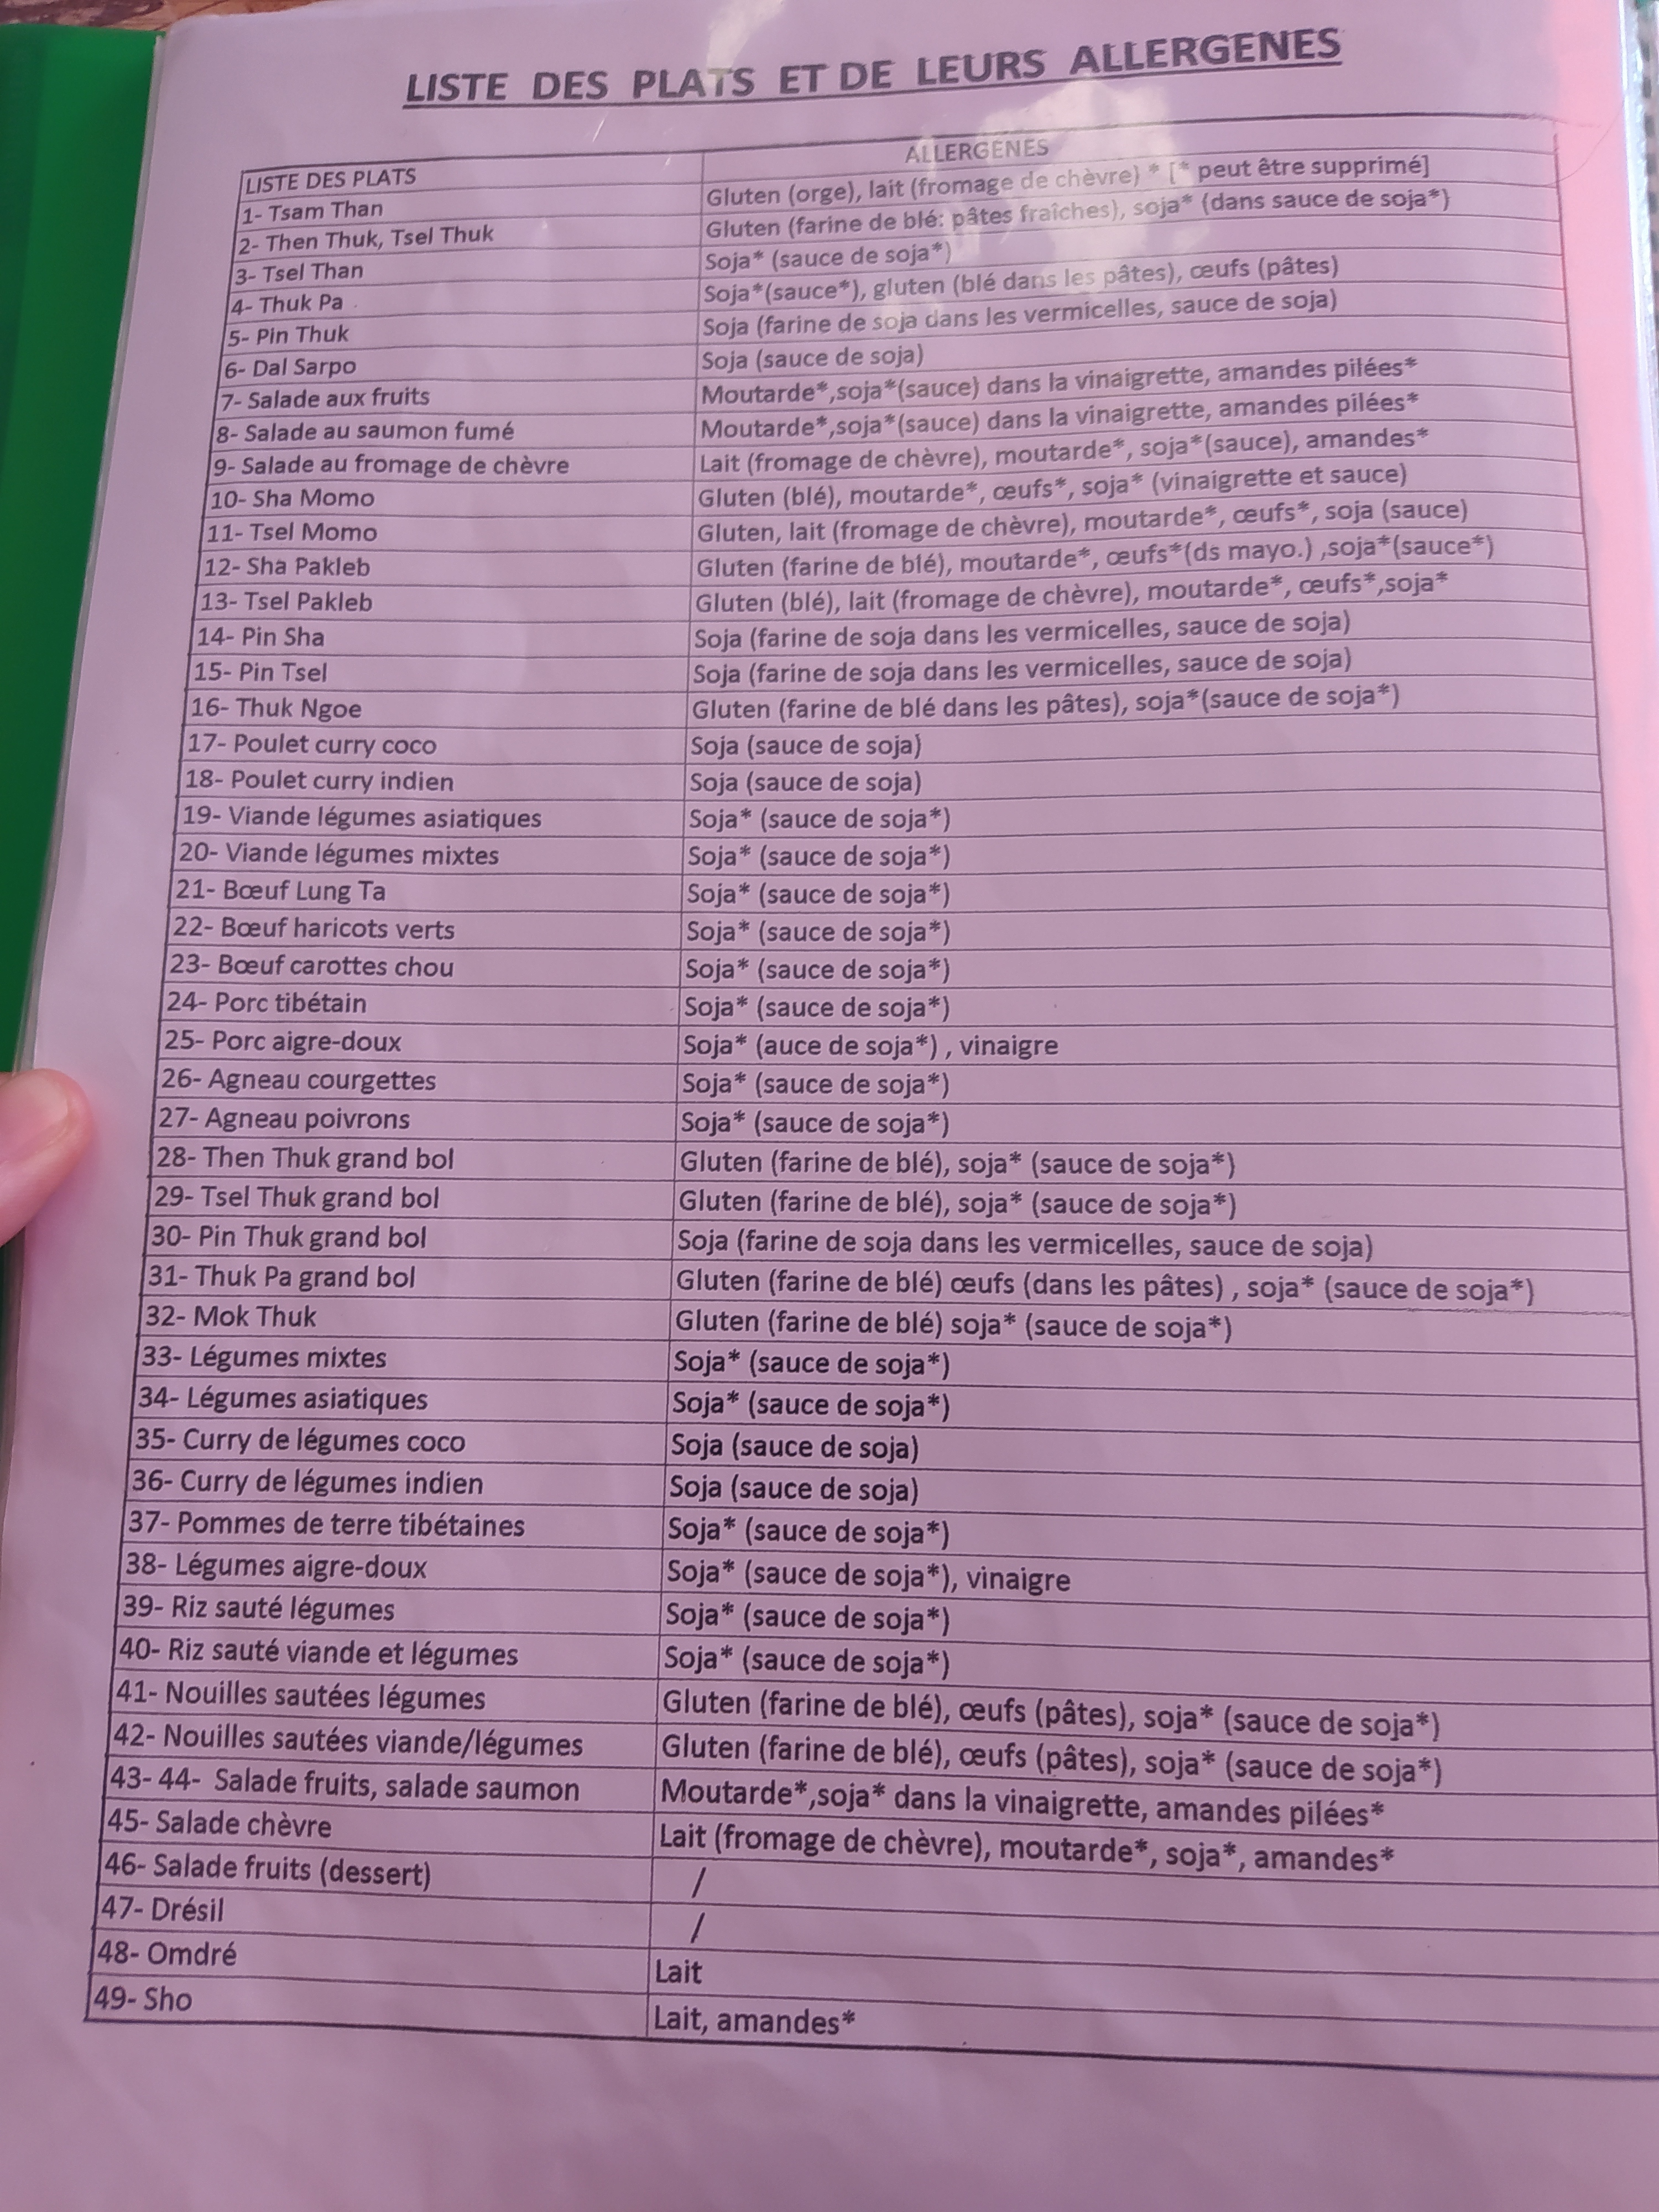 LISTE DES PLATS ET DE LEURS ALLERGENES
LISTE DES PLATS ALLERGENES
1- Tsam Than Gluten (orge), lait (fromage de chèvre) * [* peut être supprimé]
2- Then Thuk, Tsel Thuk Gluten (farine de blé: pâtes fraîches), soja* (dans sauce de soja*)
3- Tsel Than Soja* (sauce de soja*)
4- Thuk Pa Soja*(sauce*), gluten (blé dans les pâtes), œufs (pâtes)
5- Pin Thuk Soja (farine de soja dans les vermicelles, sauce de soja)
6- Dal Sarpo Soja (sauce de soja)
7- Salade aux fruits Moutarde*,soja*(sauce) dans la vinaigrette, amandes pilées*
8- Salade au saumon fumé Moutarde*,soja*(sauce) dans la vinaigrette, amandes pilées*
9- Salade au fromage de chèvre Lait (fromage de chèvre), moutarde*, soja*(sauce), amandes*
10- Sha Momo Gluten (blé), moutarde*, œufs*, soja* (vinaigrette et sauce)
11- Tsel Momo Gluten, lait (fromage de chèvre), moutarde*, œufs*, soja (sauce)
12- Sha Pakleb Gluten (farine de blé), moutarde*, œufs*(ds mayo.) ,soja*(sauce*)
13- Tsel Pakleb Gluten (blé), lait (fromage de chèvre), moutarde*, œufs*,soja*
14- Pin Sha Soja (farine de soja dans les vermicelles, sauce de soja)
15- Pin Tsel Soja (farine de soja dans les vermicelles, sauce de soja)
16- Thuk Ngoe Gluten (farine de blé dans les pâtes), soja*(sauce de soja*)
17- Poulet curry coco Soja (sauce de soja)
18- Poulet curry indien Soja (sauce de soja)
19- Viande légumes asiatiques Soja* (sauce de soja*)
20- Viande légumes mixtes Soja* (sauce de soja*)
21- Bœuf Lung Ta Soja* (sauce de soja*)
22- Bœuf haricots verts Soja* (sauce de soja*)
23- Bœuf carottes chou Soja* (sauce de soja*)
24- Porc tibétain Soja* (sauce de soja*)
25- Porc aigre-doux Soja* (auce de soja*) , vinaigre
26- Agneau courgettes Soja* (sauce de soja*)
27- Agneau poivrons Soja* (sauce de soja*)
28- Then Thuk grand bol Gluten (farine de blé), soja* (sauce de soja*)
29- Tsel Thuk grand bol Gluten (farine de blé), soja* (sauce de soja*)
30- Pin Thuk grand bol Soja (farine de soja dans les vermicelles, sauce de soja)
31- Thuk Pa grand bol Gluten (farine de blé) œufs (dans les pâtes) , soja* (sauce de soja*)
32- Mok Thuk Gluten (farine de blé) soja* (sauce de soja*)
33- Légumes mixtes Soja* (sauce de soja*)
34- Légumes asiatiques Soja* (sauce de soja*)
35- Curry de légumes coco Soja (sauce de soja)
36- Curry de légumes indien Soja (sauce de soja)
37- Pommes de terre tibétaines Soja* (sauce de soja*)
38- Légumes aigre-doux Soja* (sauce de soja*), vinaigre
39- Riz sauté légumes Soja* (sauce de soja*)
40- Riz sauté viande et légumes Soja* (sauce de soja*)
41- Nouilles sautées légumes Gluten (farine de blé), œufs (pâtes), soja* (sauce de soja*)
42- Nouilles sautées viande/légumes Gluten (farine de blé), œufs (pâtes), soja* (sauce de soja*)
43- 44- Salade fruits, salade saumon Moutarde*,soja* dans la vinaigrette, amandes pilées*
45- Salade chèvre Lait (fromage de chèvre), moutarde*, soja*, amandes*
46- Salade fruits (dessert) /
47- Drésil /
48- Omdré Lait
49- Sho Lait, amandes*